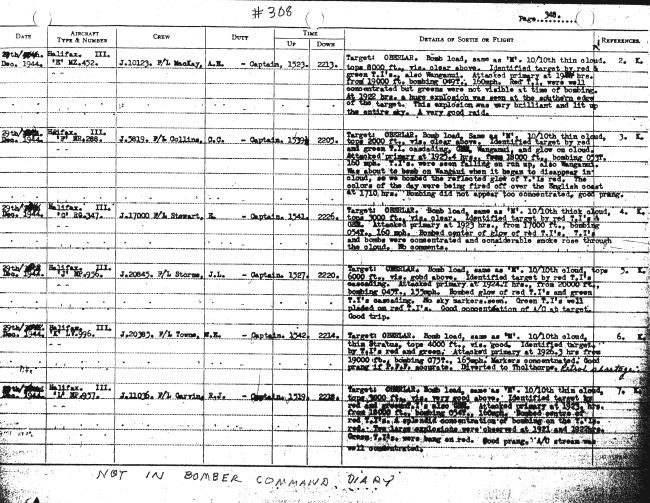 # 308
Page 348.
DATE AIRCRAFT TYPE & NUMBER CREW DUTY TIME UP DOWN DETAILS OF SORTIE OR FLIGHT REFERENCES.
Dec. 1944. Halifax. III. 'E' MZ.452. J.10123. F/L MacKay, A.R. - Captain. 1523. 2213. 2. K.
Target: OBERLAR. Bomb load, same as 'M'. 10/10th thin cloud,
tops 8000 ft., vis. clear. Identified target by red &
green T.I's., also Wanganui. Attacked primary at hrs.
from 19000 ft. bombing 049T. 160mph. Red T.I. were well
concentrated but greens were not visible at time of bombing.
At 1922 hrs. a huge explosion was seen at the southern edge
of the target. This explosion was very brilliant and lit up
the entire sky. A very good raid.
29th Dec. 1944. Halifax. III. 'F' NR.288. J.5819. F/L Collins, C.C. - Captain. 2205. 3. K.
Target: OBERLAR. Bomb load, Same as 'M'. 10/10th thin cloud,
tops 2000 ft., vis. clear. Identified target by red
and green T.I. cascading, Wanganui, and glow on cloud.
Attacked primary at 1925.4 hrs., from 18000 ft., bombing 053T.
160 mph. T.I's. were seen falling on run up, also Wanganui.
Was about to bomb on Wanganui when it began to disappear in
cloud, so we bombed the reflected glow of T.'Is red. The
colors of the day were being fired off over the English coast
at 1710 hrs. Bombing did not appear too concentrated, good prang.
29th Dec. 1944. Halifax. III. 'G' RG.347. J.17000 F/L Stewart, R. - Captain. 1541. 2226. 4. K.
Target: OBERLAR. Bomb load, same as 'M'. 10/10 thick cloud,
tops 3000 ft., vis. clear. Identified target by red T.I's &
Attacked primary at 1923 hrs., from 17000 ft., bombing
054T., 160 mph. Bombed center of glow of red T.I's. T.I's
and bombs were concentrated and considerable smoke rose through
the cloud. No comments.
29th Dec. 1944. Halifax. III. 'J' NP.956. J.20845. F/L Storms, J.L. - Captain. 1527. 2220. 5. K.
Target: OBERLAR. Bomb load, same as 'M'. 10/10th cloud, tops
6000 ft., vis. good above. Identified target by red T.I's
cascading. Attacked primary at hrs., from 20000 ft.,
bombing 045T., 155mph. Bombed glow of red T.I's and green
T.I's cascading. No sky markers seen. Green T.I's well
placed on red T.I's. Good concentration of A/C at target.
Good trip.
29th Dec. 1944. Halifax. III. 'K' .996. J.20385. F/L Towns, W.R. - Captain. 1542. 2214. 6. K.
Target: OBERLAR. Bomb load, same as 'M'. 10/10th cloud,
thin Stratus, tops 4000 ft., vis. good. Identified target
by T.I's red and green. Attacked primary at 1926.3 hrs from
19000 ft., bombing 075T., 165mph. Markers concentrated. Good
prang if P.F.F. accurate. Diverted to Tholthorpe. Petrol shortage.
Dec. 1944. Halifax. III. 'L' NP.957. J.11036. F/L Garvin, R.J. - Captain. 1519. 2218. 7. K.
Target: OBERLAR. Bomb load, same as 'M'. 10/10th cloud,
tops 3000 ft. vis. very good above. Identified target by
red and ground T.I's also. Attacked primary at 1925 hrs.
from 18000 ft., bombing 054T., 160mph. Bombed centre of
red T.I's. A splendid concentration of bombing on the T.'Is
red. Two large explosions were observed at 1921 and 1922hrs.
Green T.I's. were hung on red. Good prang. A/C stream was
well concentrated.
NOT IN BOMBER COMMAND DIARY